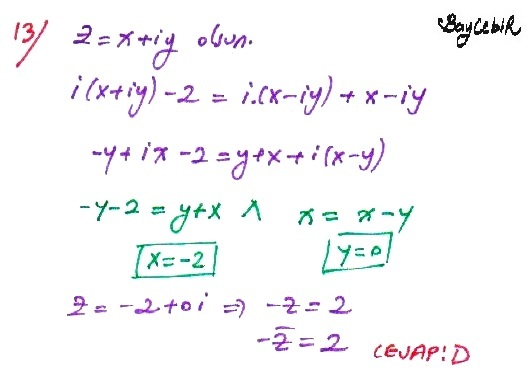 13/ z = x+iy olsun. BayCebiR
i(x+iy) -2 = i.(x-iy) + x-iy
-y+ix -2 = y+x+i(x-y)
-y-2 = y+x ∧ x = x-y
x=-2 y=0
z = -2+0i ⇒ -z = 2
-z̄ = 2 CEVAP:D